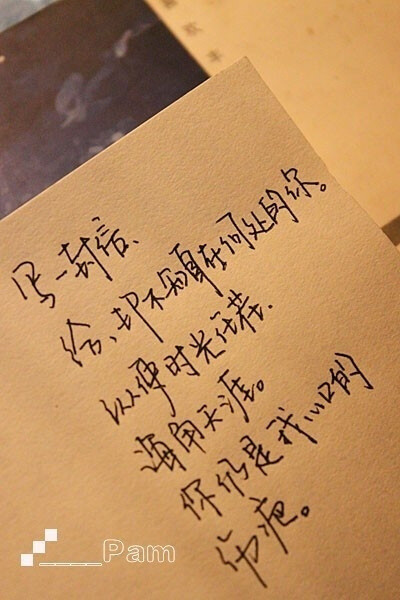 写一封信、
给、却不知身在何处的你。
以便时光荏苒、
海角天涯。
你仍是我心口的
伤疤。
____Pam